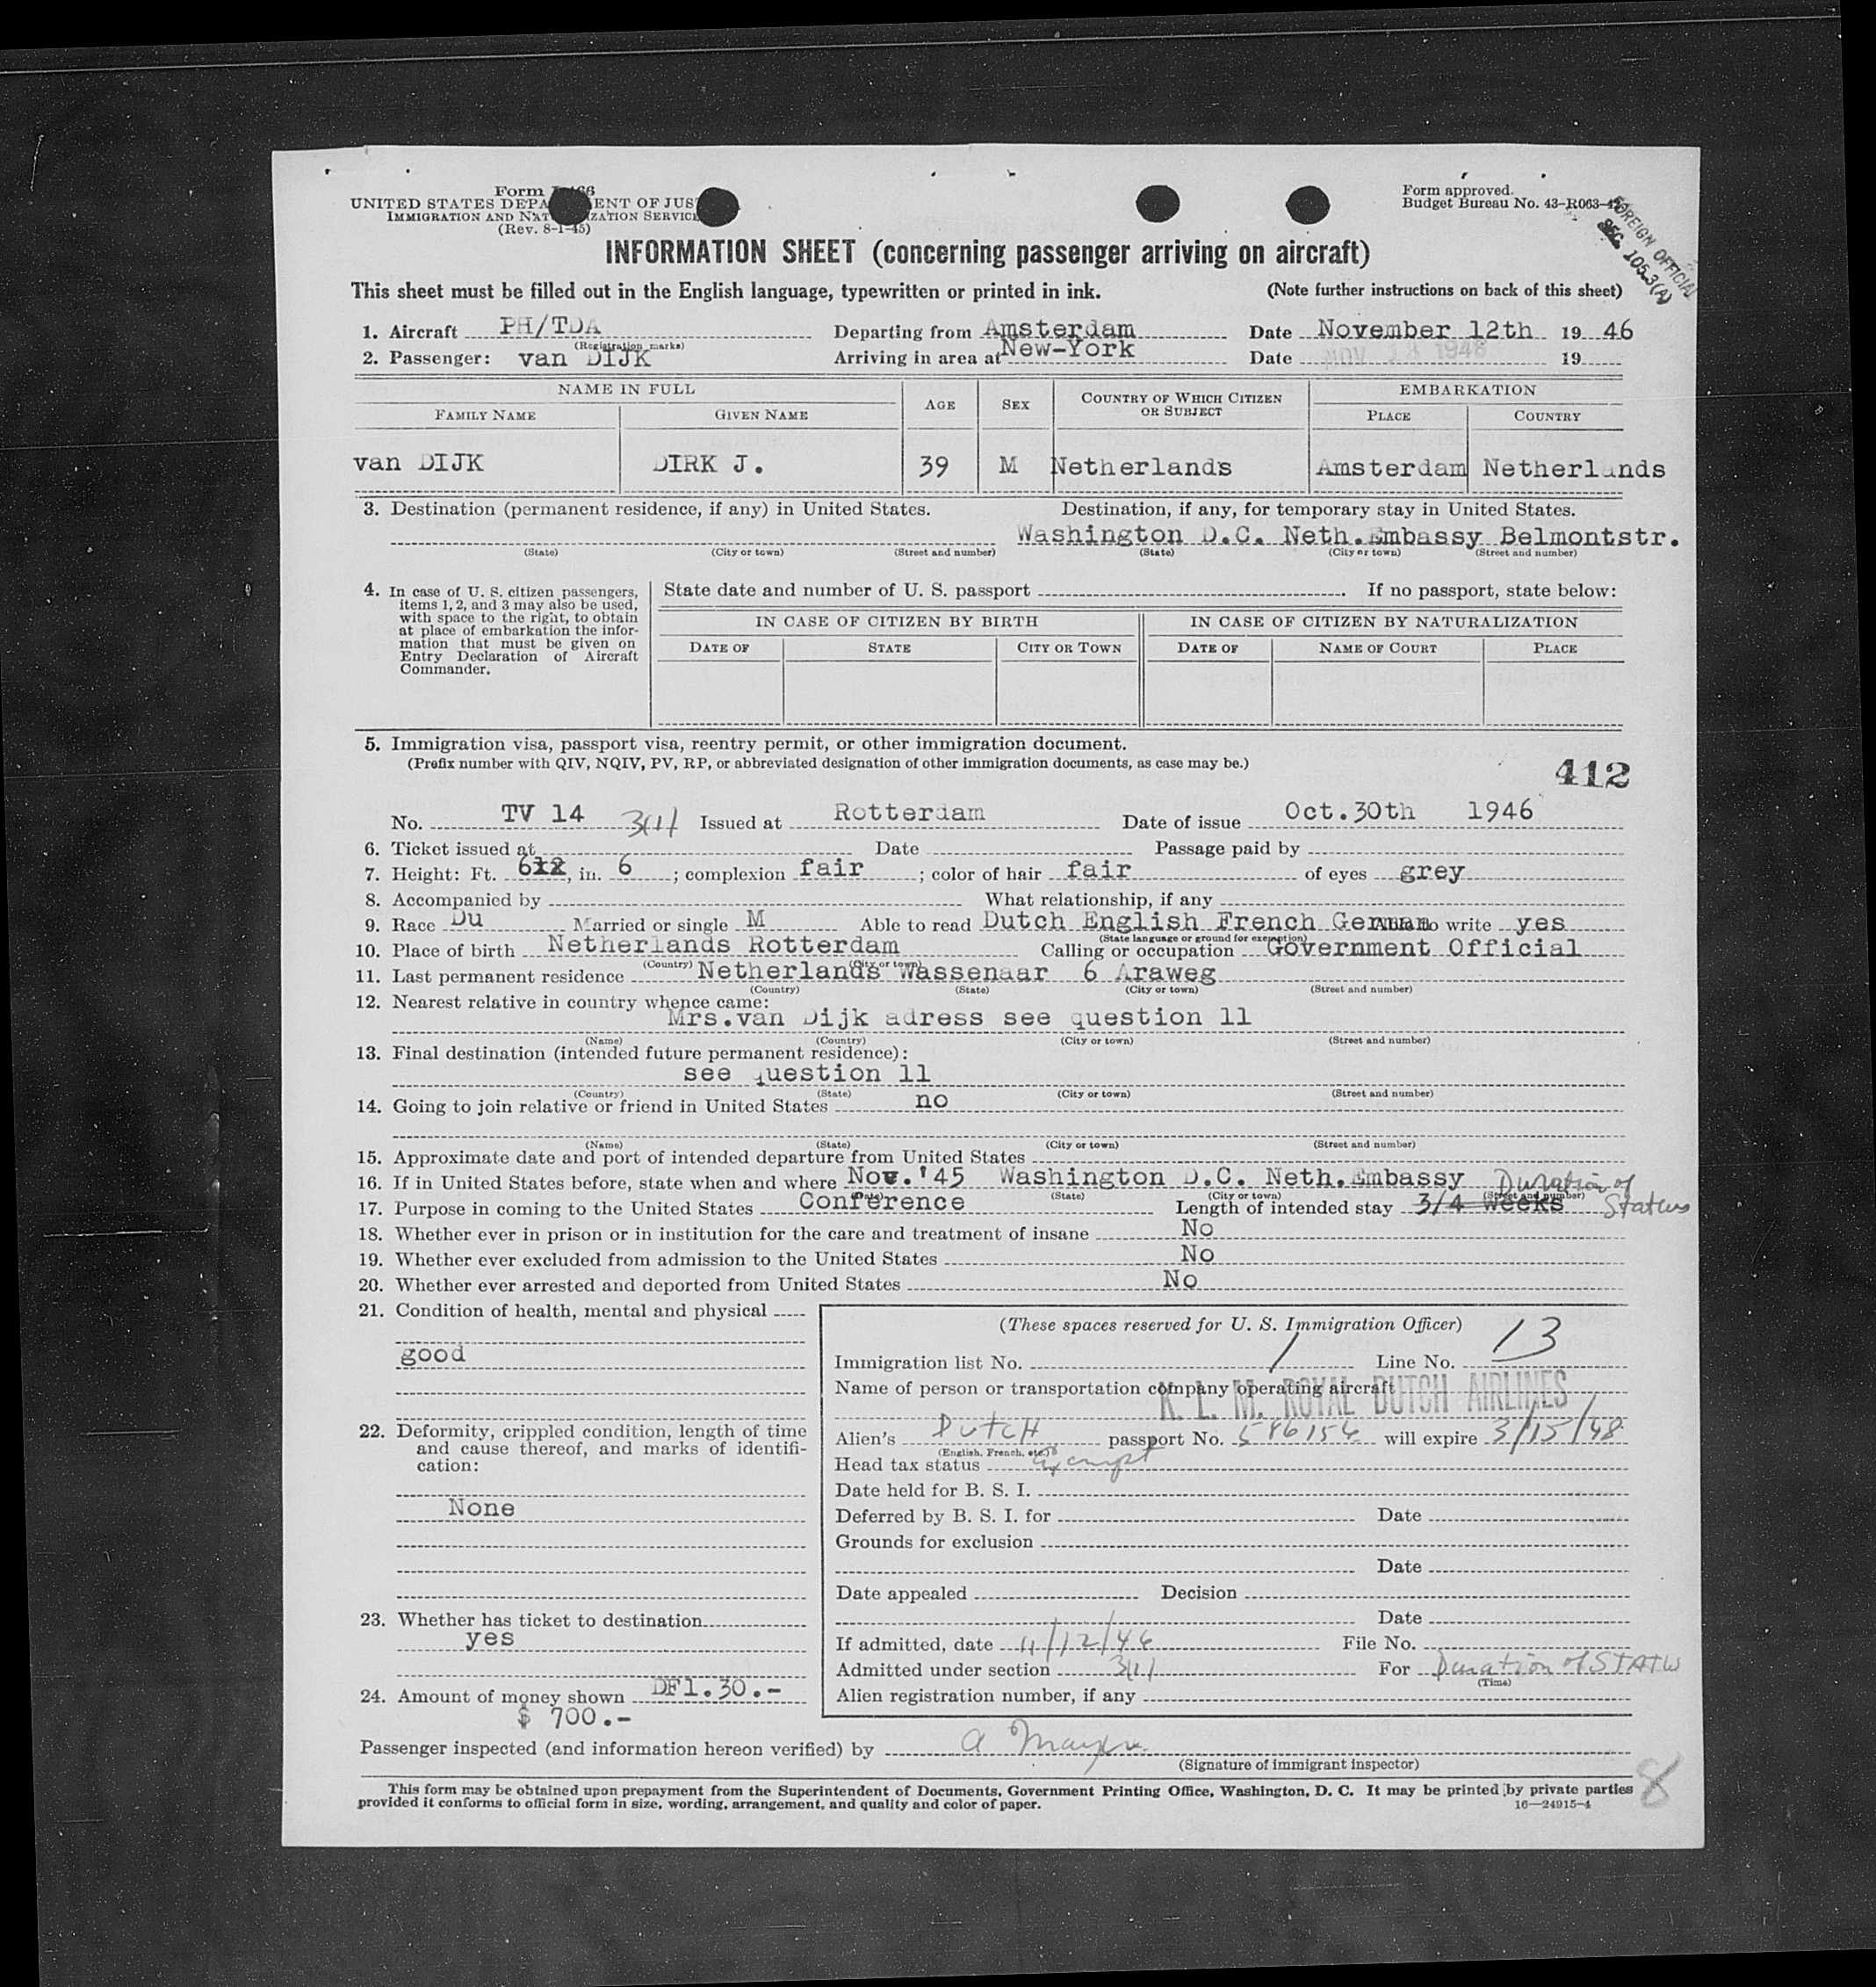 Form
UNITED STATES DEPA ENT OF JUS
IMMIGRATION AND NAT IZATION SERVICE
(Rev. 8-1-45)
Form approved.
Budget Bureau No. 43-R063-
FOREIGN OFFICIAL
SEC 105.3(A)
INFORMATION SHEET (concerning passenger arriving on aircraft)
This sheet must be filled out in the English language, typewritten or printed in ink. (Note further instructions on back of this sheet)
1. Aircraft PH/TDA Departing from Amsterdam Date November 12th 19 46
(Registration marks)
2. Passenger: van DIJK Arriving in area at New-York Date NOV 1946 19
NAME IN FULL AGE SEX COUNTRY OF WHICH CITIZEN OR SUBJECT EMBARKATION
FAMILY NAME GIVEN NAME PLACE COUNTRY
van DIJK DIRK J. 39 M Netherlands Amsterdam Netherlands
3. Destination (permanent residence, if any) in United States. Destination, if any, for temporary stay in United States.
Washington D.C. Neth.Embassy Belmontstr.
(State) (City or town) (Street and number) (State) (City or town) (Street and number)
4. In case of U. S. citizen passengers,
items 1, 2, and 3 may also be used,
with space to the right, to obtain
at place of embarkation the infor-
mation that must be given on
Entry Declaration of Aircraft
Commander.
State date and number of U. S. passport If no passport, state below:
IN CASE OF CITIZEN BY BIRTH IN CASE OF CITIZEN BY NATURALIZATION
DATE OF STATE CITY OR TOWN DATE OF NAME OF COURT PLACE
5. Immigration visa, passport visa, reentry permit, or other immigration document.
(Prefix number with QIV, NQIV, PV, RP, or abbreviated designation of other immigration documents, as case may be.)
412
No. TV 14 3(1) Issued at Rotterdam Date of issue Oct.30th 1946
6. Ticket issued at Date Passage paid by
7. Height: Ft. 6, in. 6 ; complexion fair ; color of hair fair of eyes grey
8. Accompanied by What relationship, if any
9. Race Du Married or single M Able to read Dutch English French German Able to write yes
(State language or ground for exemption)
10. Place of birth Netherlands Rotterdam Calling or occupation Government Official
(Country) (City or town)
11. Last permanent residence Netherlands Wassenaar 6 Araweg
(Country) (State) (City or town) (Street and number)
12. Nearest relative in country whence came:
Mrs.van Dijk adress see question 11
(Name) (Country) (City or town) (Street and number)
13. Final destination (intended future permanent residence):
see question 11
(Country) (State) (City or town) (Street and number)
14. Going to join relative or friend in United States no
(Name) (State) (City or town) (Street and number)
15. Approximate date and port of intended departure from United States
16. If in United States before, state when and where Nov.'45 Washington D.C. Neth.Embassy
(Date) (State) (City or town) (Street and number)
Duration of
Status
17. Purpose in coming to the United States Conference Length of intended stay 3/4 weeks
18. Whether ever in prison or in institution for the care and treatment of insane No
19. Whether ever excluded from admission to the United States No
20. Whether ever arrested and deported from United States No
21. Condition of health, mental and physical
good
22. Deformity, crippled condition, length of time
and cause thereof, and marks of identifi-
cation:
None
23. Whether has ticket to destination
yes
24. Amount of money shown DFl.30.-
$ 700.-
(These spaces reserved for U. S. Immigration Officer)
Immigration list No. 1 Line No. 13
Name of person or transportation company operating aircraft
K. L. M. ROYAL DUTCH AIRLINES
Alien's DUTCH passport No. 586156 will expire 3/15/48
(English, French, etc.)
Head tax status Exempt
Date held for B. S. I.
Deferred by B. S. I. for Date
Grounds for exclusion
Date
Date appealed Decision
Date
If admitted, date 11/12/46 File No.
Admitted under section 3(1) For Duration of STATUS
(Time)
Alien registration number, if any
Passenger inspected (and information hereon verified) by
(Signature of immigrant inspector)
This form may be obtained upon prepayment from the Superintendent of Documents, Government Printing Office, Washington, D. C. It may be printed by private parties
provided it conforms to official form in size, wording, arrangement, and quality and color of paper. 16—24915-4
8